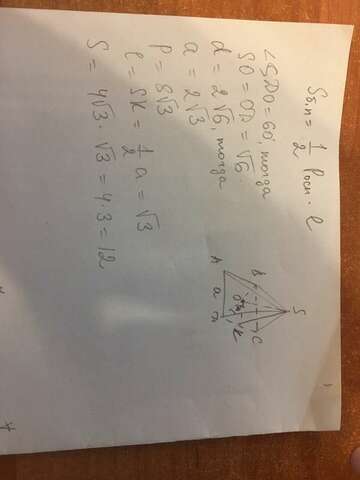 Sб.п = 1/2 Pосн · l
∠SDO = 60°, тогда
SO = OD = √6.
d = 2√6, тогда
a = 2√3
P = 8√3
l = SK = 1/2 a = √3
S = 4√3 · √3 = 4 · 3 = 12
S
B
C
O
K
A
a
D